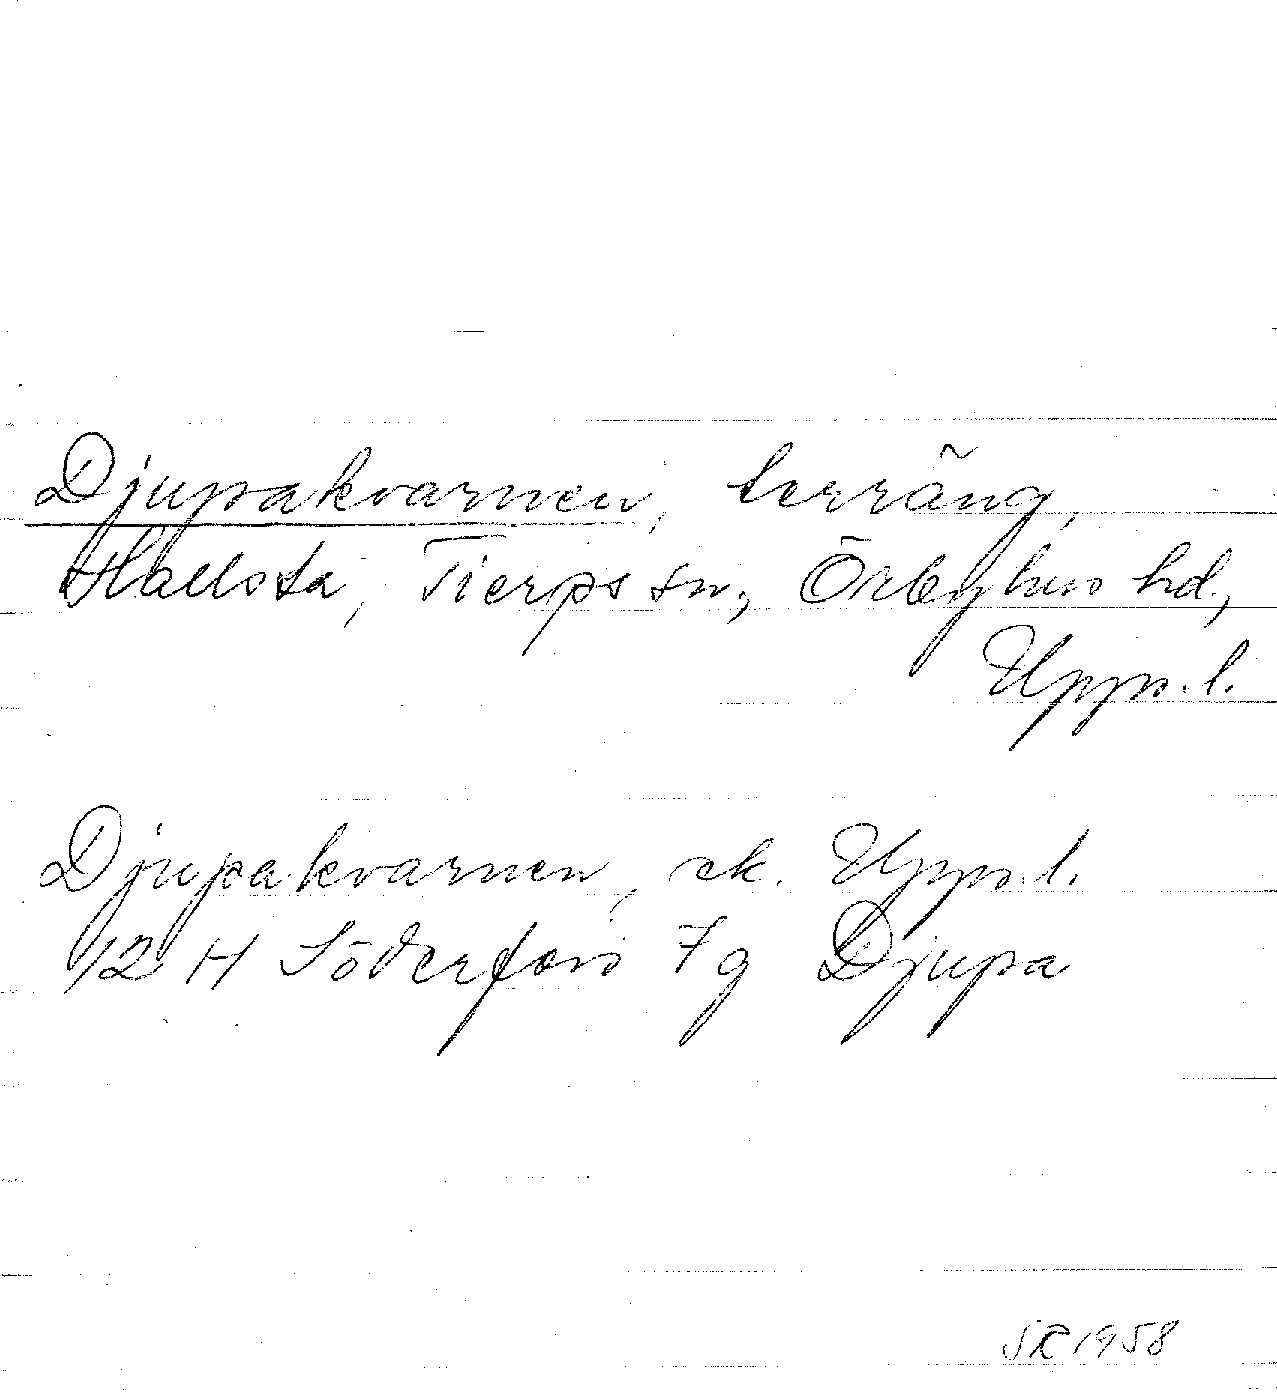 Djupakvarnen, terräng,
Hallsta, Tierps sn, Örbyhus hd,
Upps.l.
Djupakvarnen, ek. Upps.l.
12 H Söderfors 7 g Djupa
SR 1958